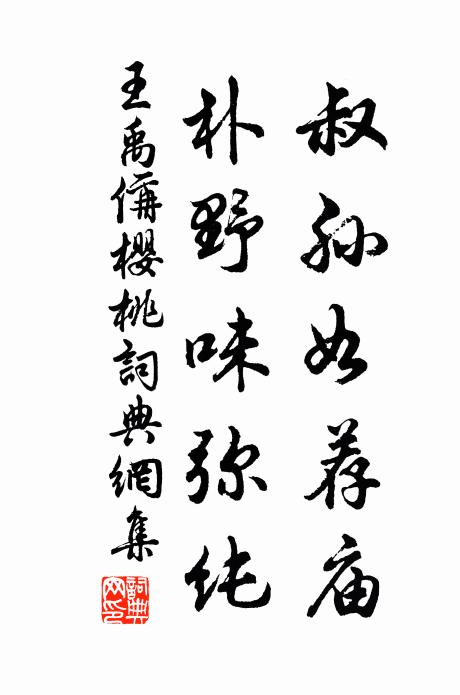 叔孙如荐庙
朴野味弥纯
王禹偁櫻桃詞典網集
詞典网印